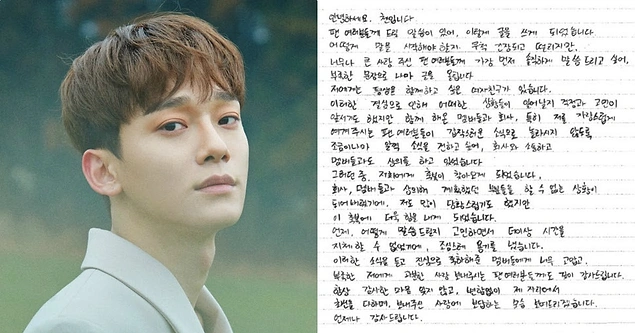 안녕하세요. 첸입니다.
팬 여러분들께 드릴 말씀이 있어, 이렇게 글을 쓰게 되었습니다.
어떻게 말을 시작해야 할지 무척 긴장되고 떨리지만,
너무나 큰 사랑 주신 팬 여러분들께 가장 먼저 솔직하게 말씀 드리고 싶어,
부족한 문장으로 나마 글을 올립니다.
저에게는 평생을 함께하고 싶은 여자친구가 있습니다.
이러한 결심으로 인해 어떠한 상황들이 일어날지 걱정과 고민이
앞서기도 했지만 함께 해온 멤버들과 회사, 특히 저를 자랑스럽게
여겨주시는 팬 여러분들이 갑작스러운 소식으로 놀라시지 않도록
조금이나마 일찍 소식을 전하고 싶어, 회사와 소통하고
멤버들과도 상의를 하고 있었습니다.
그러던 중, 저희에게 축복이 찾아오게 되었습니다.
회사, 멤버들과 상의해 계획했던 부분들을 할 수 없는 상황이
되어버렸기에, 저도 많이 당황스럽기도 했지만
이 축복에 더욱 힘을 내게 되었습니다.
언제, 어떻게 말씀드릴지 고민하면서 더이상 시간을
지체 할 수 없었기에, 조심스레 용기를 냈습니다.
이러한 소식을 듣고 진심으로 축하해준 멤버들에게 너무 고맙고,
부족한 저에게 과분한 사랑 보내주시는 팬 여러분들께도 깊이 감사드립니다.
항상 감사한 마음 잊지 않고, 변함없이 제 자리에서
최선을 다하며, 보내주신 사랑에 보답하는 모습 보여드리겠습니다.
언제나 감사드립니다.